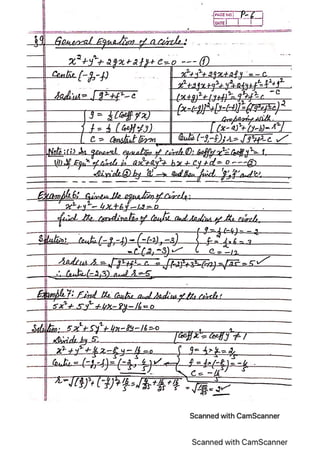 PAGE NO. P-6
DATE
§9 General Equation of a circle:
x²+y²+2gx+2fy+c=0 ---①
Centre (-g,-f)
Radius = √g²+f²-c
g = ½ (Coeff of x)
f = ½ (Coeff of y)
c = constant term
x²+y²+2gx+2fy = -c
x²+2gx+g²+y²+2fy+f²=g²+f²-c
(x+g)²+(y+f)²=g²+f²-c
[x-(-g)]²+[y-(-f)]²=(√g²+f²-c)²
Comparing with
(x-a)²+(y-b)²=r²
Centre (-g,-f) & r=√g²+f²-c
Note: (i) In general equation of circle ①: Coeff of x² = Coeff of y² = 1.
(ii) If Equⁿ of circle is ax²+ay²+bx+cy+d=0 ---②
Divide ② by 'a' → and then find 'g', 'f' and 'c'.
Example 6: Given the equation of circle:
x²+y²-4x+6y-12=0
find the coordinates of centre and radius of the circle.
Solution: Centre (-g,-f) = (-(-2), -3)
= C(2,-3)
g = ½(-4) = -2
f = ½×6 = 3
c = -12
radius r = √g²+f²-c = √(-2)²+3²-(-12) = √25 = 5
∴ Centre (-2,3) and r=5
Example 7: Find the centre and radius of the circle:
5x²+5y²+4x-8y-16=0
Solution: 5x²+5y²+4x-8y-16=0
Divide by 5.
Coeff x² = Coeff y² ≠ 1
x²+y²+4/5x-8/5y-16/5=0
Centre = (-g,-f) = (-2/5, 4/5)
g = ½×4/5 = 2/5
f = ½×(-8/5) = -4/5
c = -16/5
Scanned with CamScanner
Scanned with CamScanner